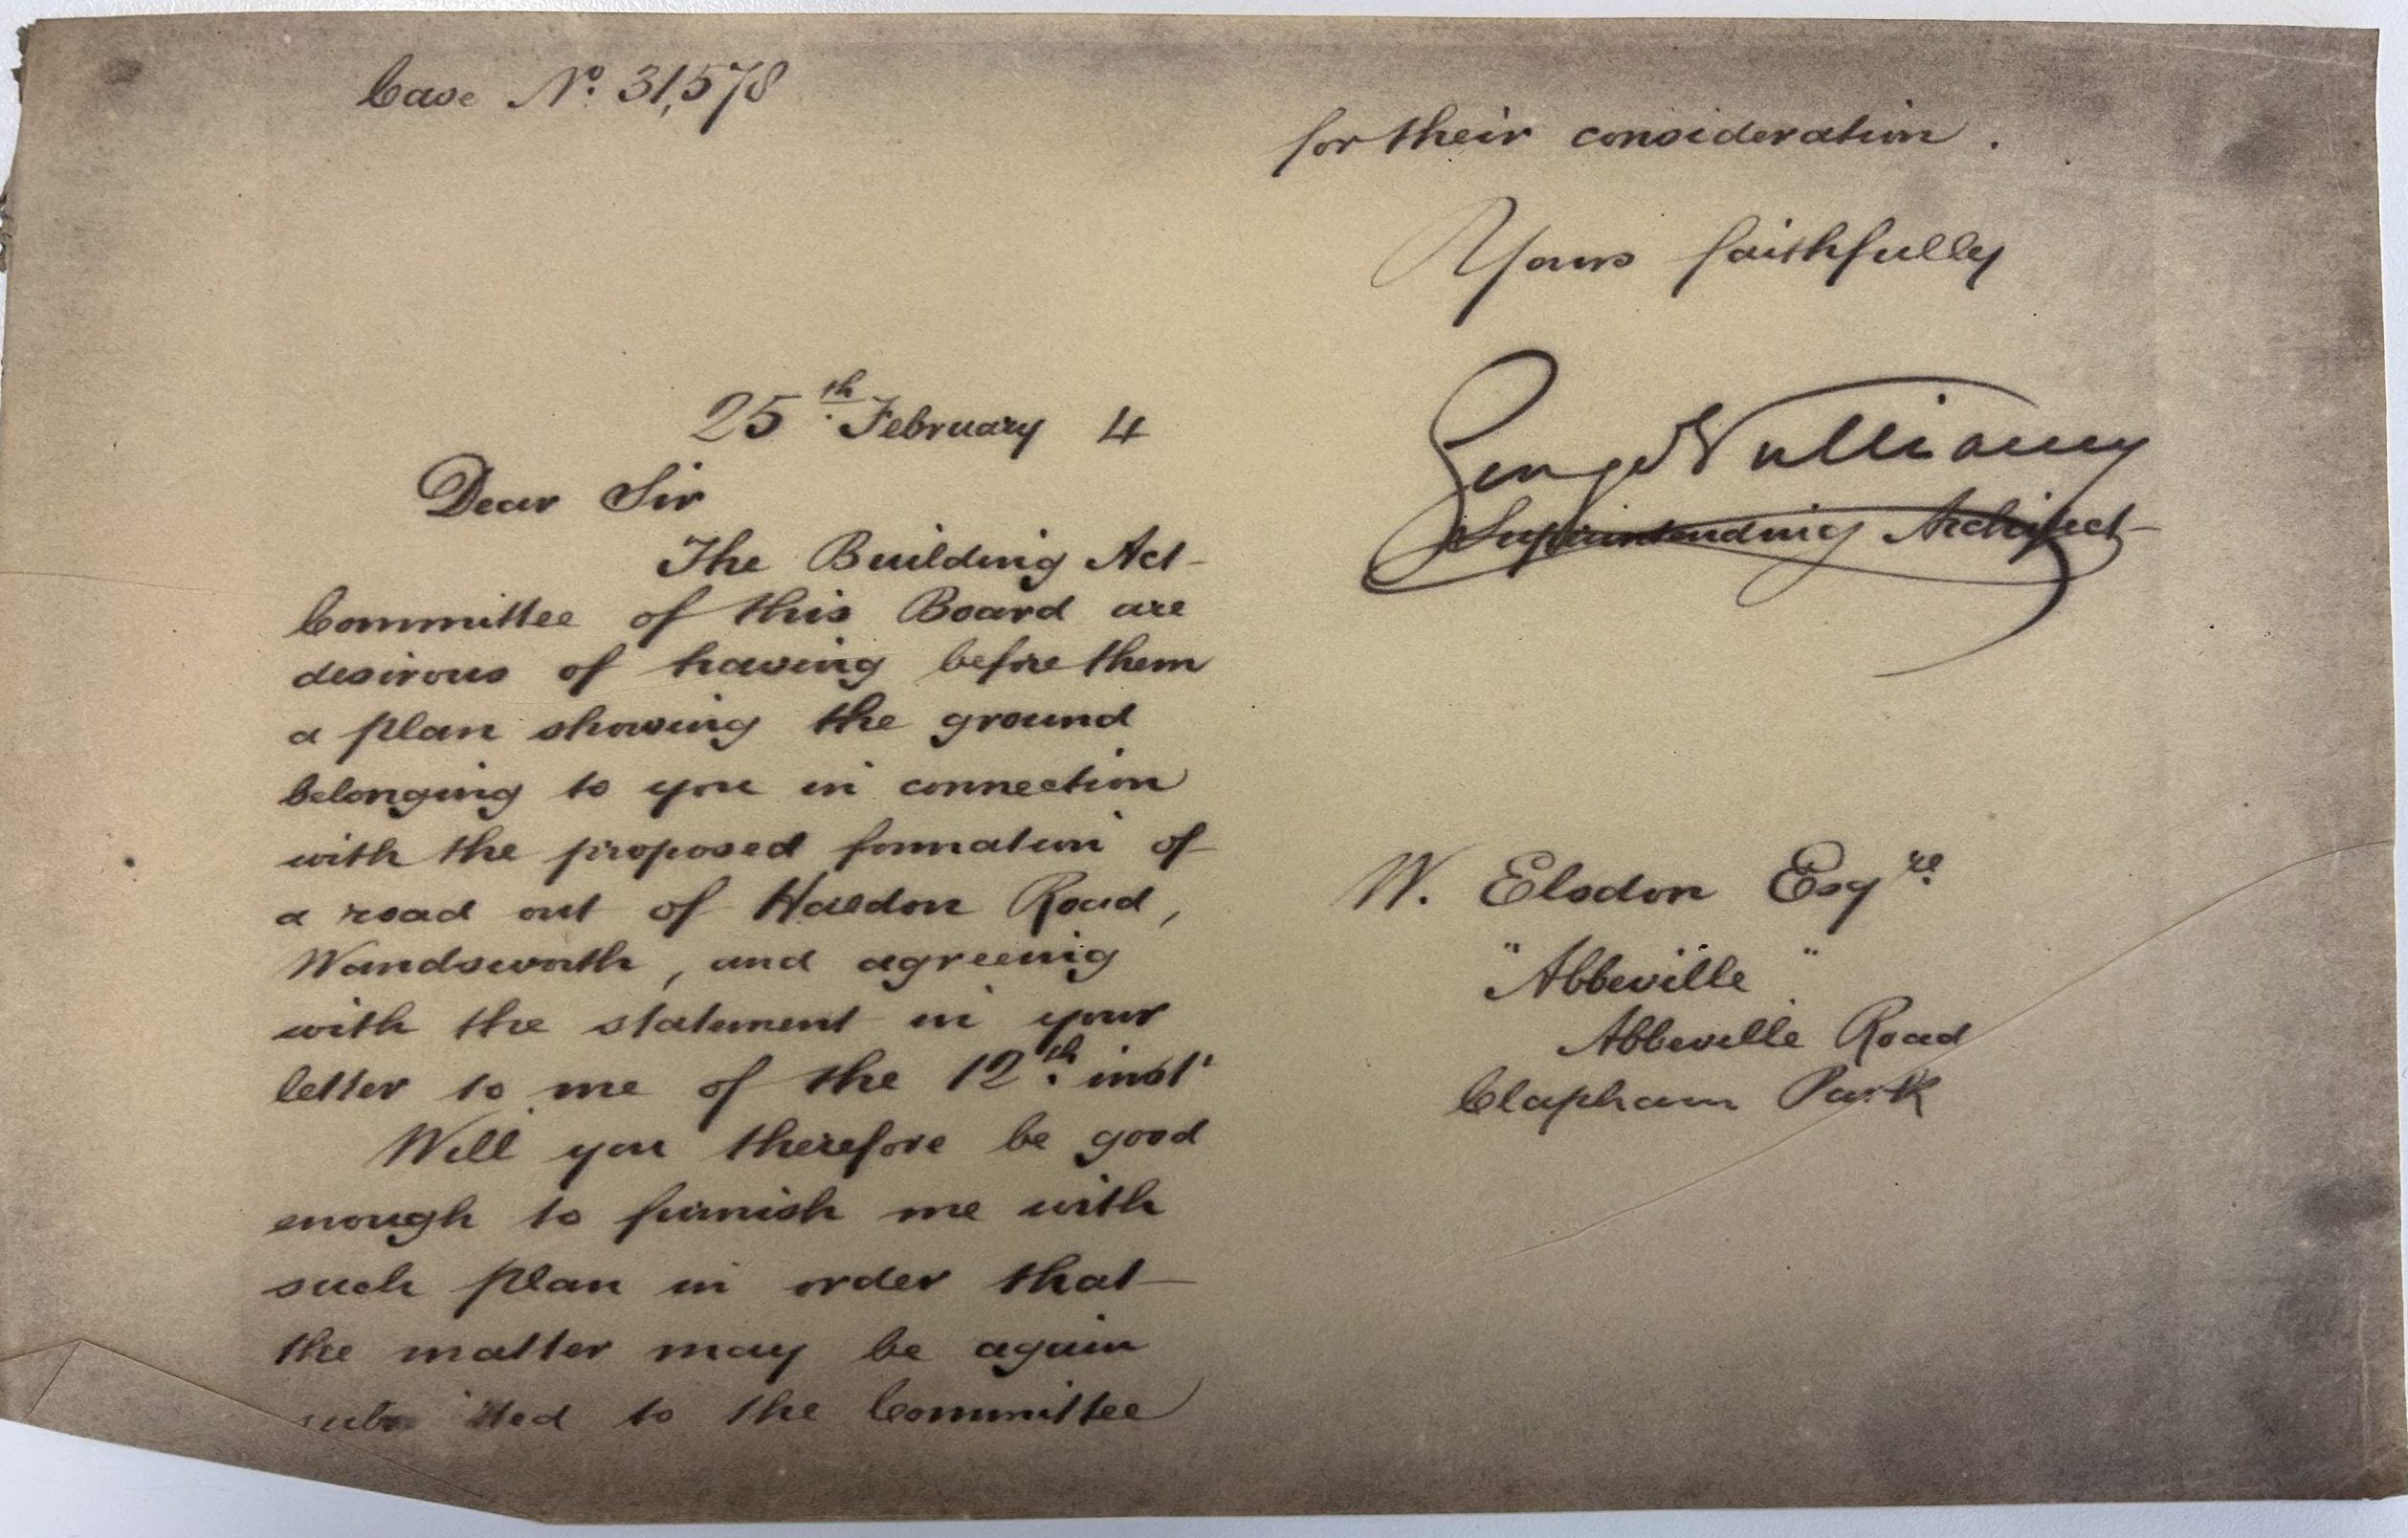 Case No. 31,578
25th February 4
Dear Sir
The Building Act
Committee of this Board are
desirous of having before them
a plan showing the ground
belonging to you in connection
with the proposed formation of
a road out of Haldon Road,
Wandsworth, and agreeing
with the statement in your
letter to me of the 12th inst
Will you therefore be good
enough to furnish me with
such plan in order that
the matter may be again
submitted to the Committee
for their consideration.
Yours faithfully
George Vulliamy
Superintending Architect
W. Elsdon Esqre
"Abbeville"
Abbeville Road
Clapham Park